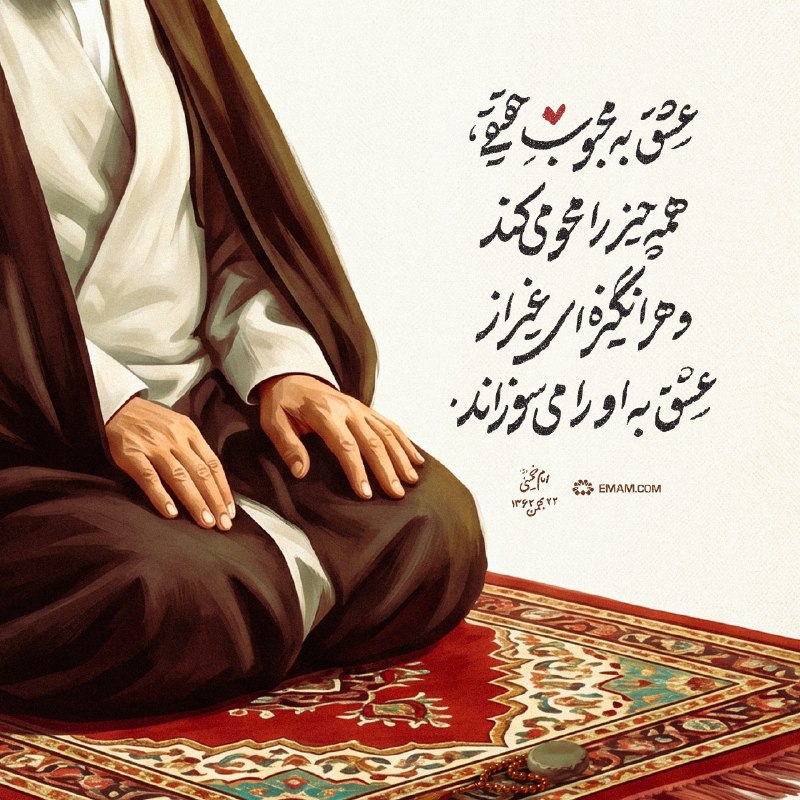 عشق به محبوبِ حقیقی،
همه چیز را محو می‌کند
و هر انگیزه‌ای غیر از
عشق به او را می‌سوزاند.
امام خمینی
۲۲ بهمن ۱۳۶۲
EMAM.COM